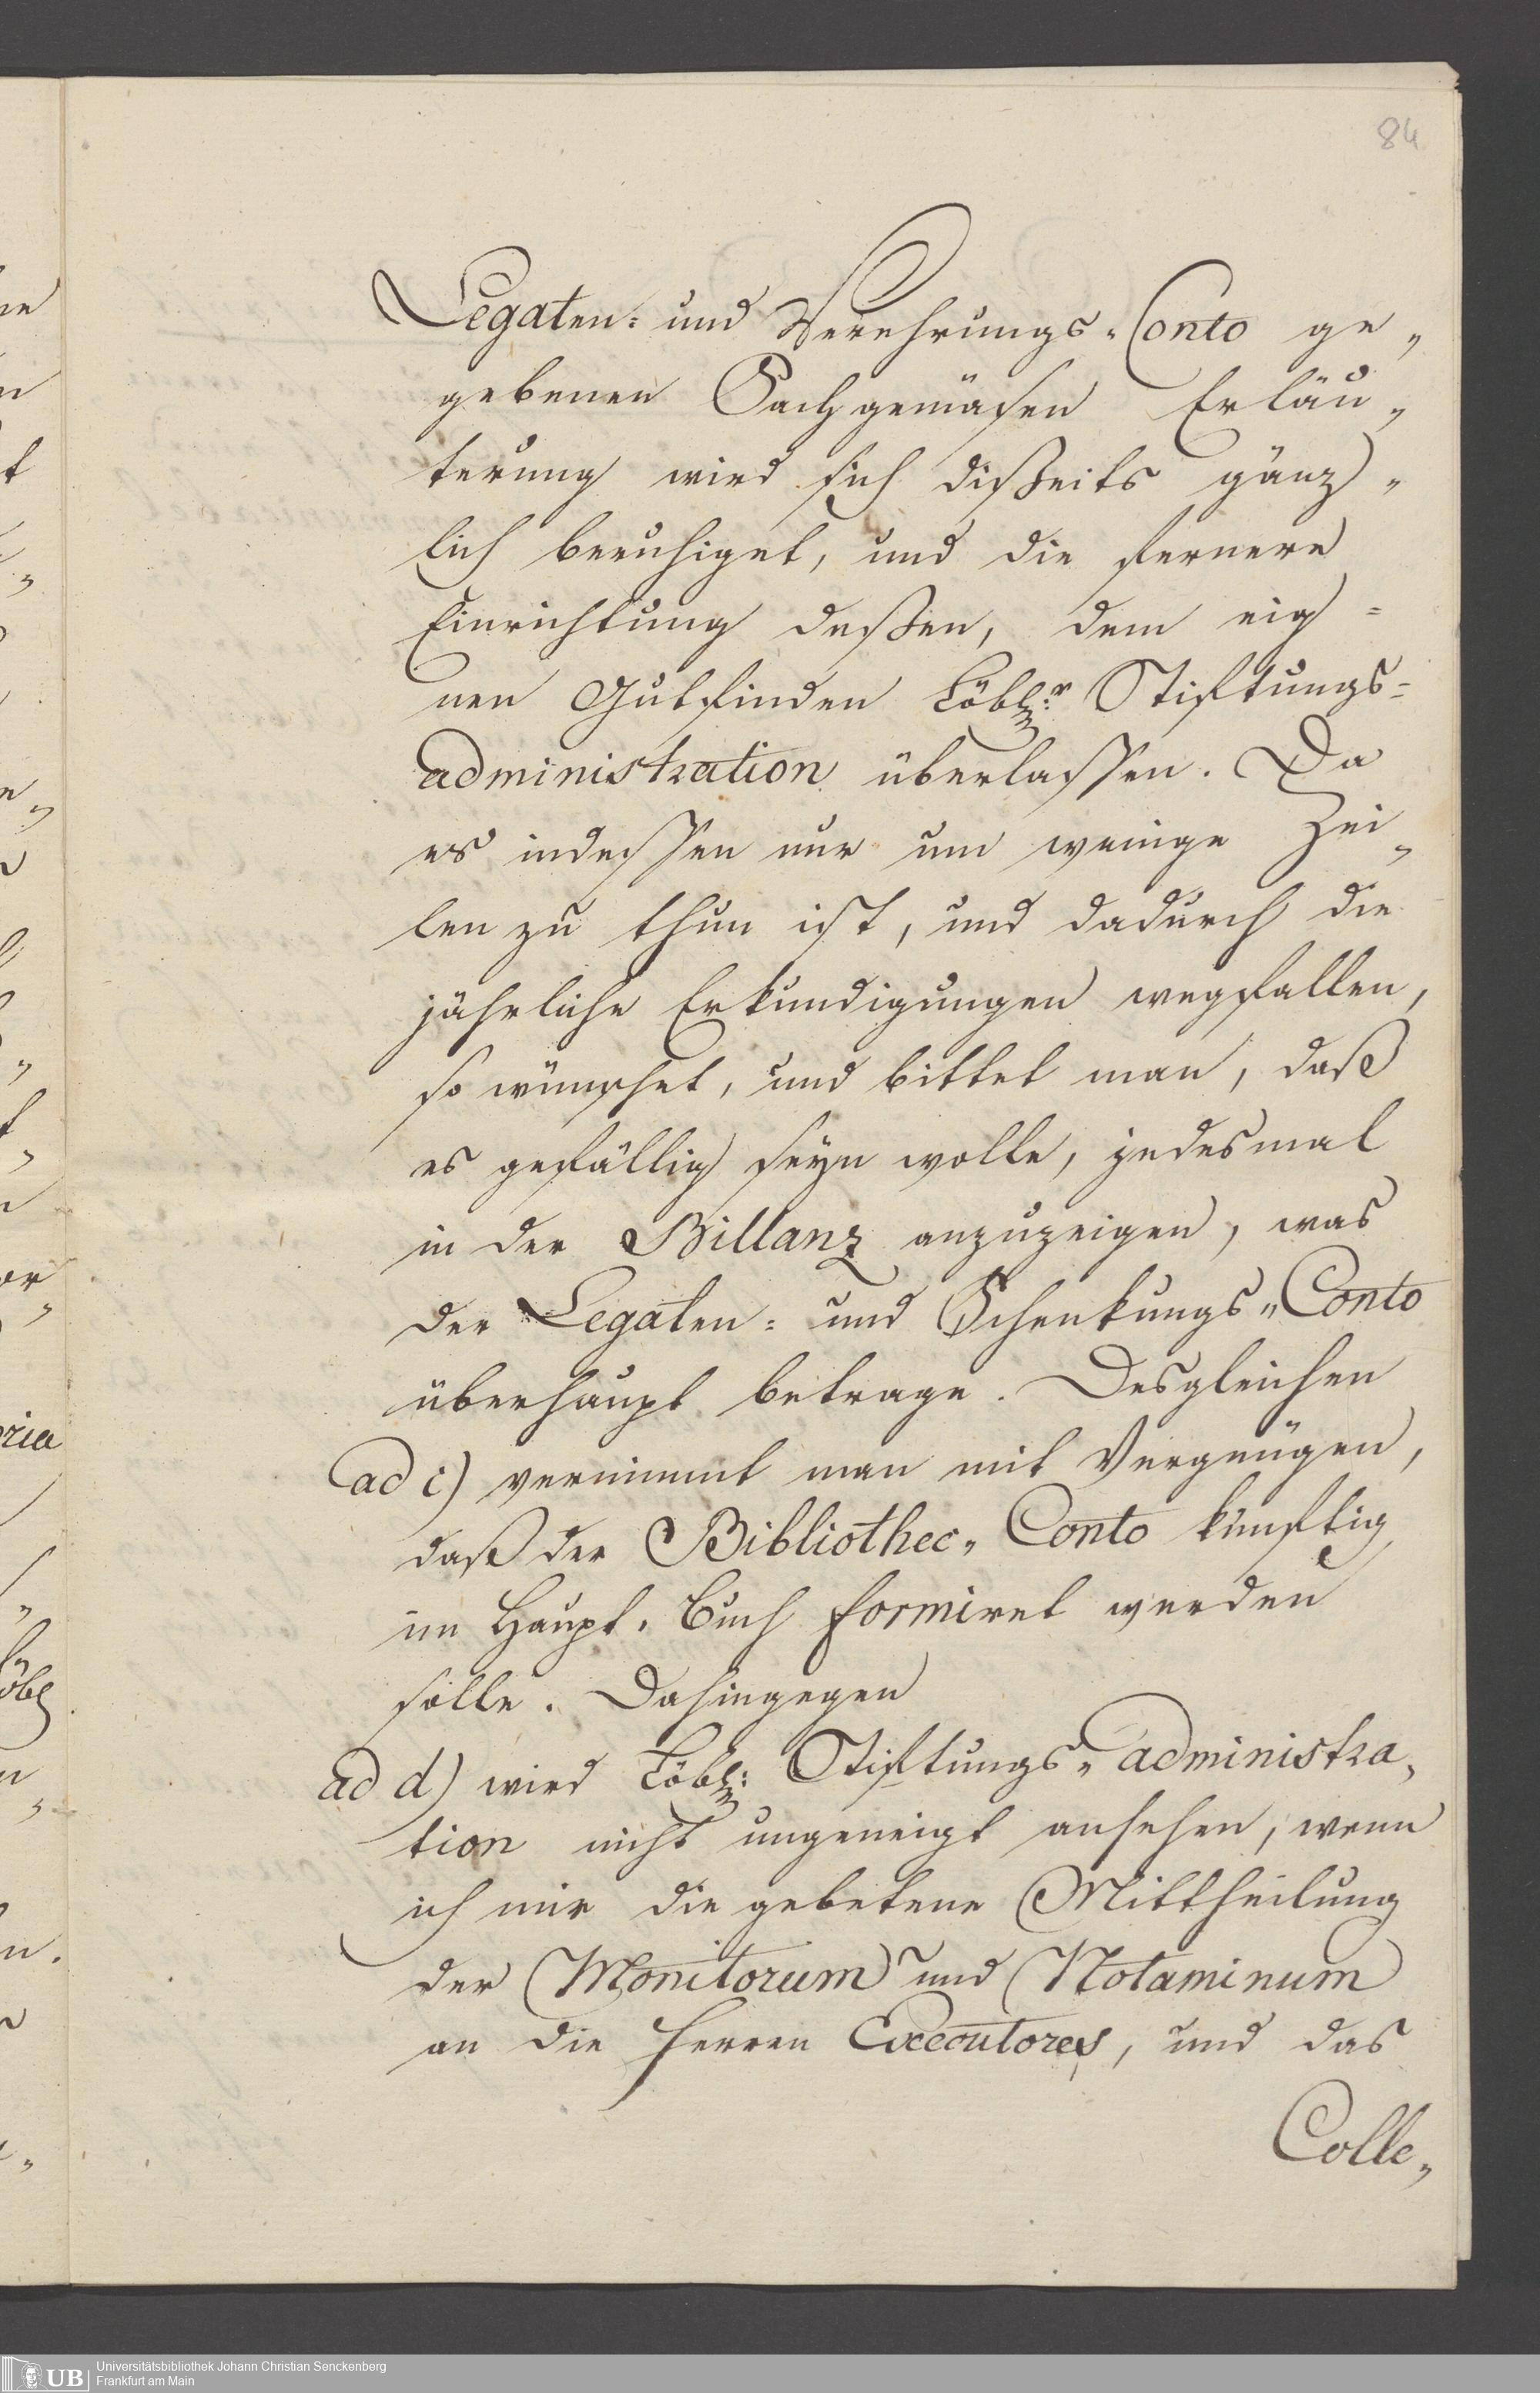 84
Legaten= und Verehrungs„Conto ge„
gebenen Sachgemäsen Erläu„
terung wird sich disseits gänz„
lich beruhiget, und die fernere
Einrichtung dessen, dem eig=
nen Gutfinden Löbl:r Stiftungs=
administration überlassen. Da
es indessen nur um wenige Zei„
len zu thun ist, und dadurch die
jährliche Erkundigungen wegfallen,
so wünschet, und bittet man, daß
es gefällig seyn wolle, jedesmal
in der Billanz anzuzeigen, was
der Legaten= und Schenkungs„Conto
überhaupt betrage. Desgleichen
ad c) vernimmt man mit Vergnügen,
daß der Bibliothec„Conto künftig
im Haupt„Buch formiret werden
solle. Dahingegen
ad d) wird Löbl: Stiftungs„administra„
tion nicht ungeneigt ansehen, wenn
ich mir die gebetene Mittheilung
der Monitorum und Notaminum
an die Herren Executores, und das
Colle„
ne
n
t
ria
öbl
n.
UB
Universitätsbibliothek Johann Christian Senckenberg
Frankfurt am Main